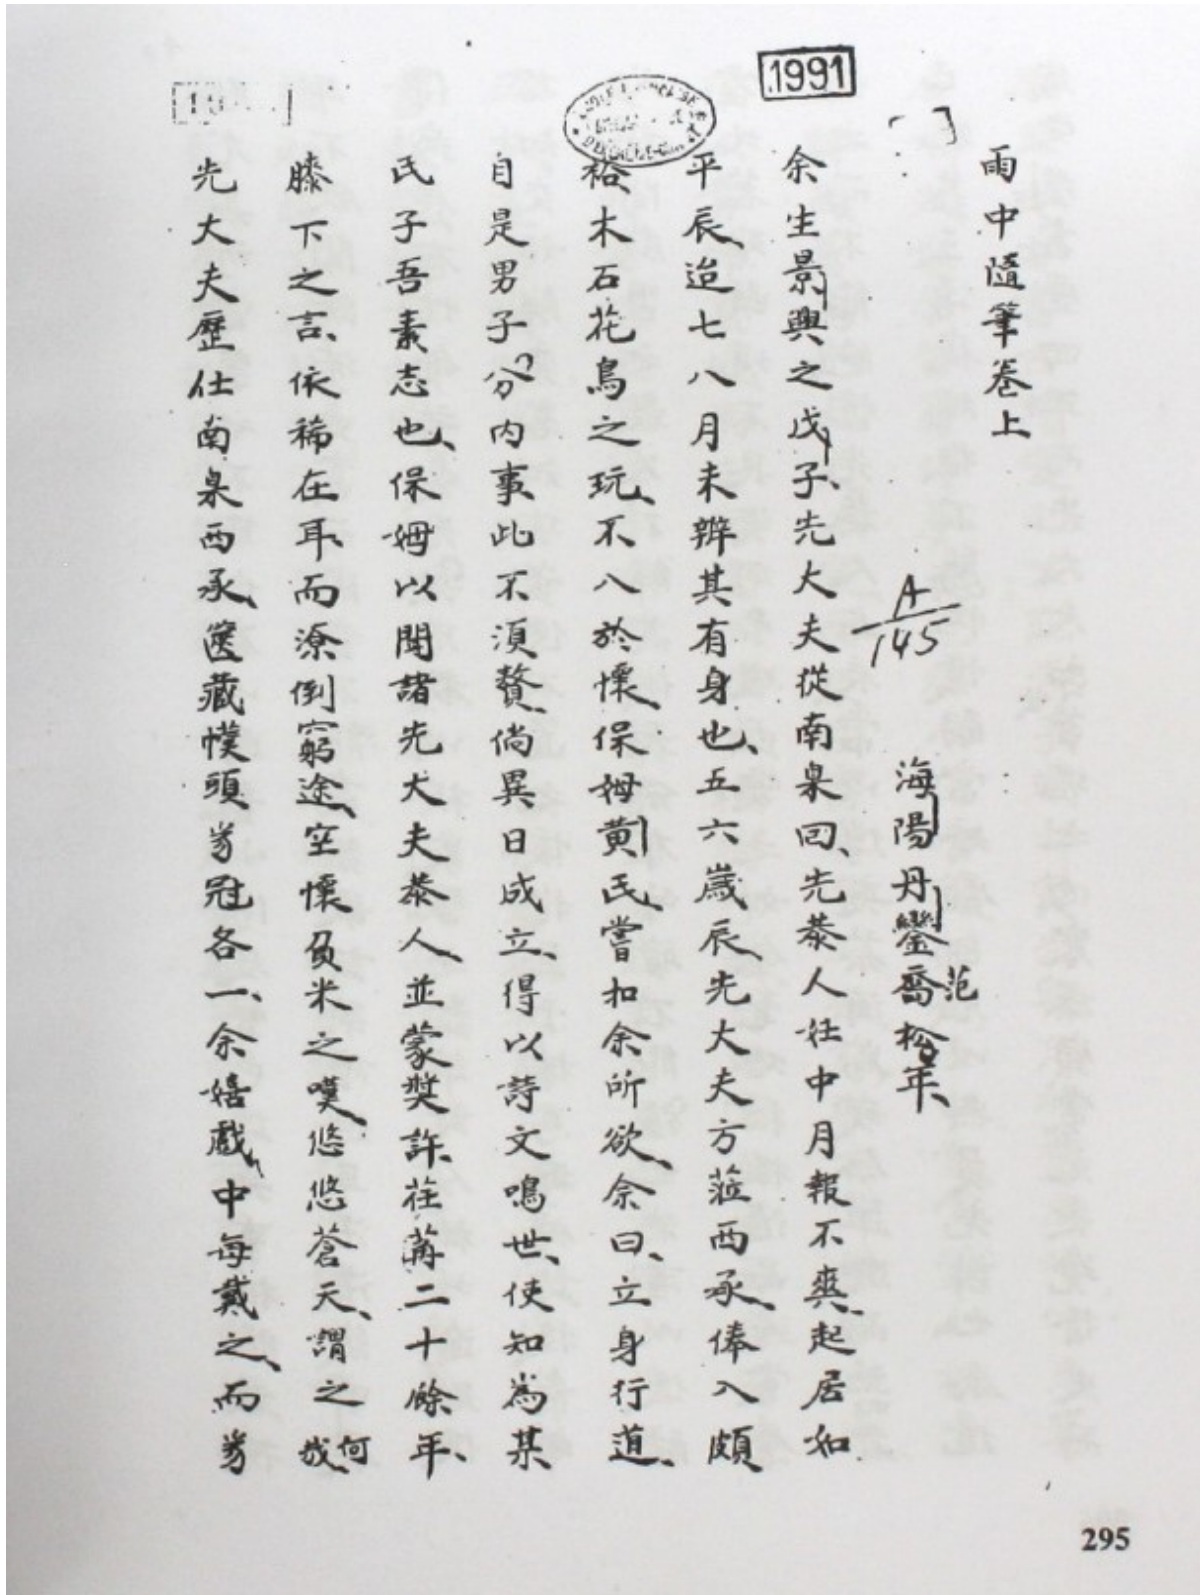 1991
雨中隨筆卷上
A
145
海陽丹鑾范喬松年、
余生景興之戊子、先大夫從南臬回、先恭人妊中月報不爽、起居如
平辰、迨七八月未辨其有身也、五六歲辰、先大夫方蒞西承、俸入頗
裕、木石花鳥之玩、不入於懷、保姆黄氏、嘗扣余所欲、余曰、立身行道、
自是男子分内事、此不須贅、倘異日成立、得以詩文鳴世、使知為某
氏子吾素志也、保姆以聞諸先大夫恭人、並蒙奨許、荏苒二十餘年、
膝下之言、依稀在耳、而潦倒窮途、空懷負米之嘆、悠悠蒼天、謂之何哉、
先大夫歷仕南臬西承、篋藏幞頭𦬑冠各一、余嬉戲中每戴之、而𦬑
295